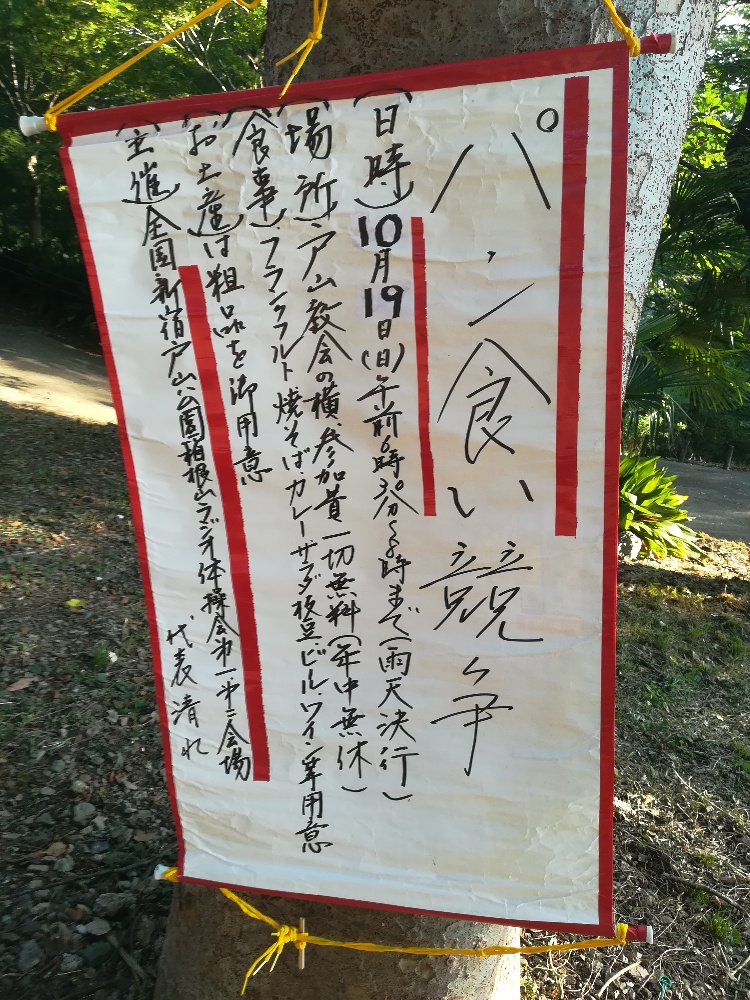 パン食い競争
(日時)10月19日(日)午前6時30分〜8時まで(雨天決行)
(場所)戸山教会の横、参加費一切無料(年中無休)
(食事)フランクフルト焼そばカレーサラダ枝豆ビルワイン等用意
(お土産)は粗品を御用意
(主催)全国新宿戸山公園箱根山ラジオ体操会第一第二会場
代表清れ